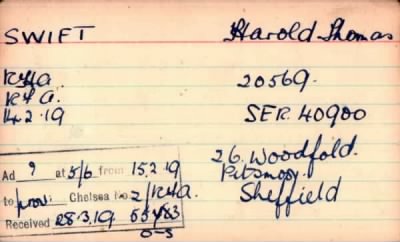 SWIFT Harold Thomas
RHA. 20569.
RFA.
14.2.19 SER. 40900
26. Woodfold.
Pitsmoor.
Sheffield
Ad ? at 5/6 from 15.2.19
to Chelsea No 2/RHA.
Received 28.3.19
0-3